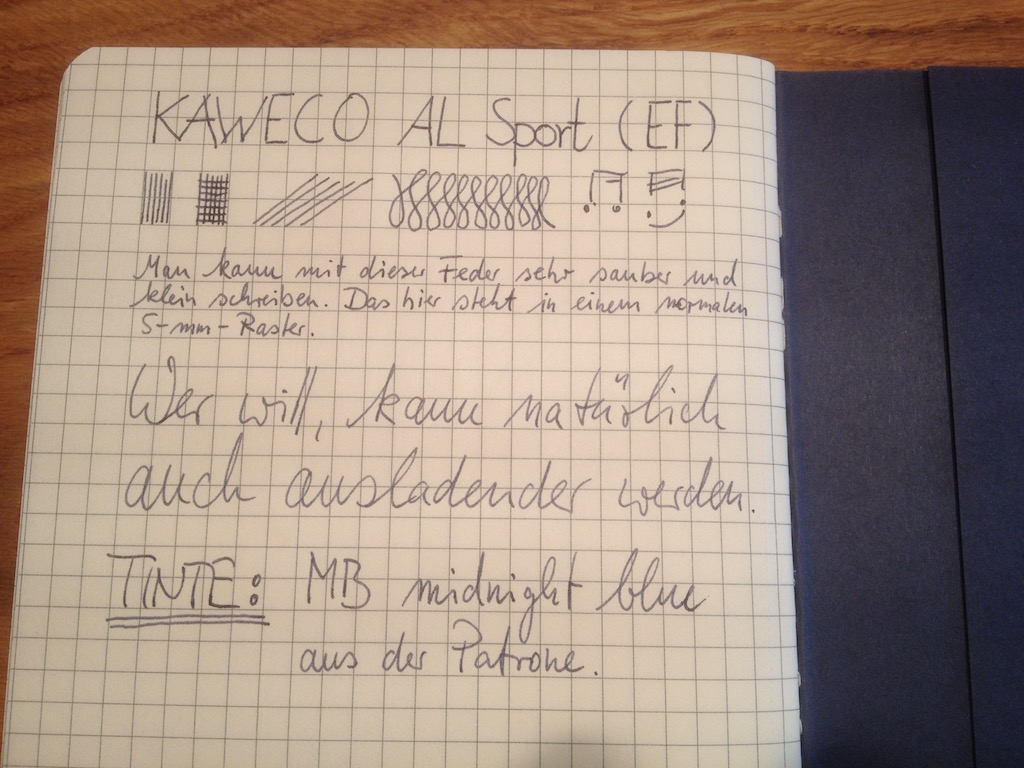 KAWECO AL Sport (EF)
Man kann mit dieser Feder sehr sauber und
klein schreiben. Das hier steht in einem normalen
5-mm-Raster.
Wer will, kann natürlich
auch ausladender werden.
TINTE: MB midnight blue
aus der Patrone.